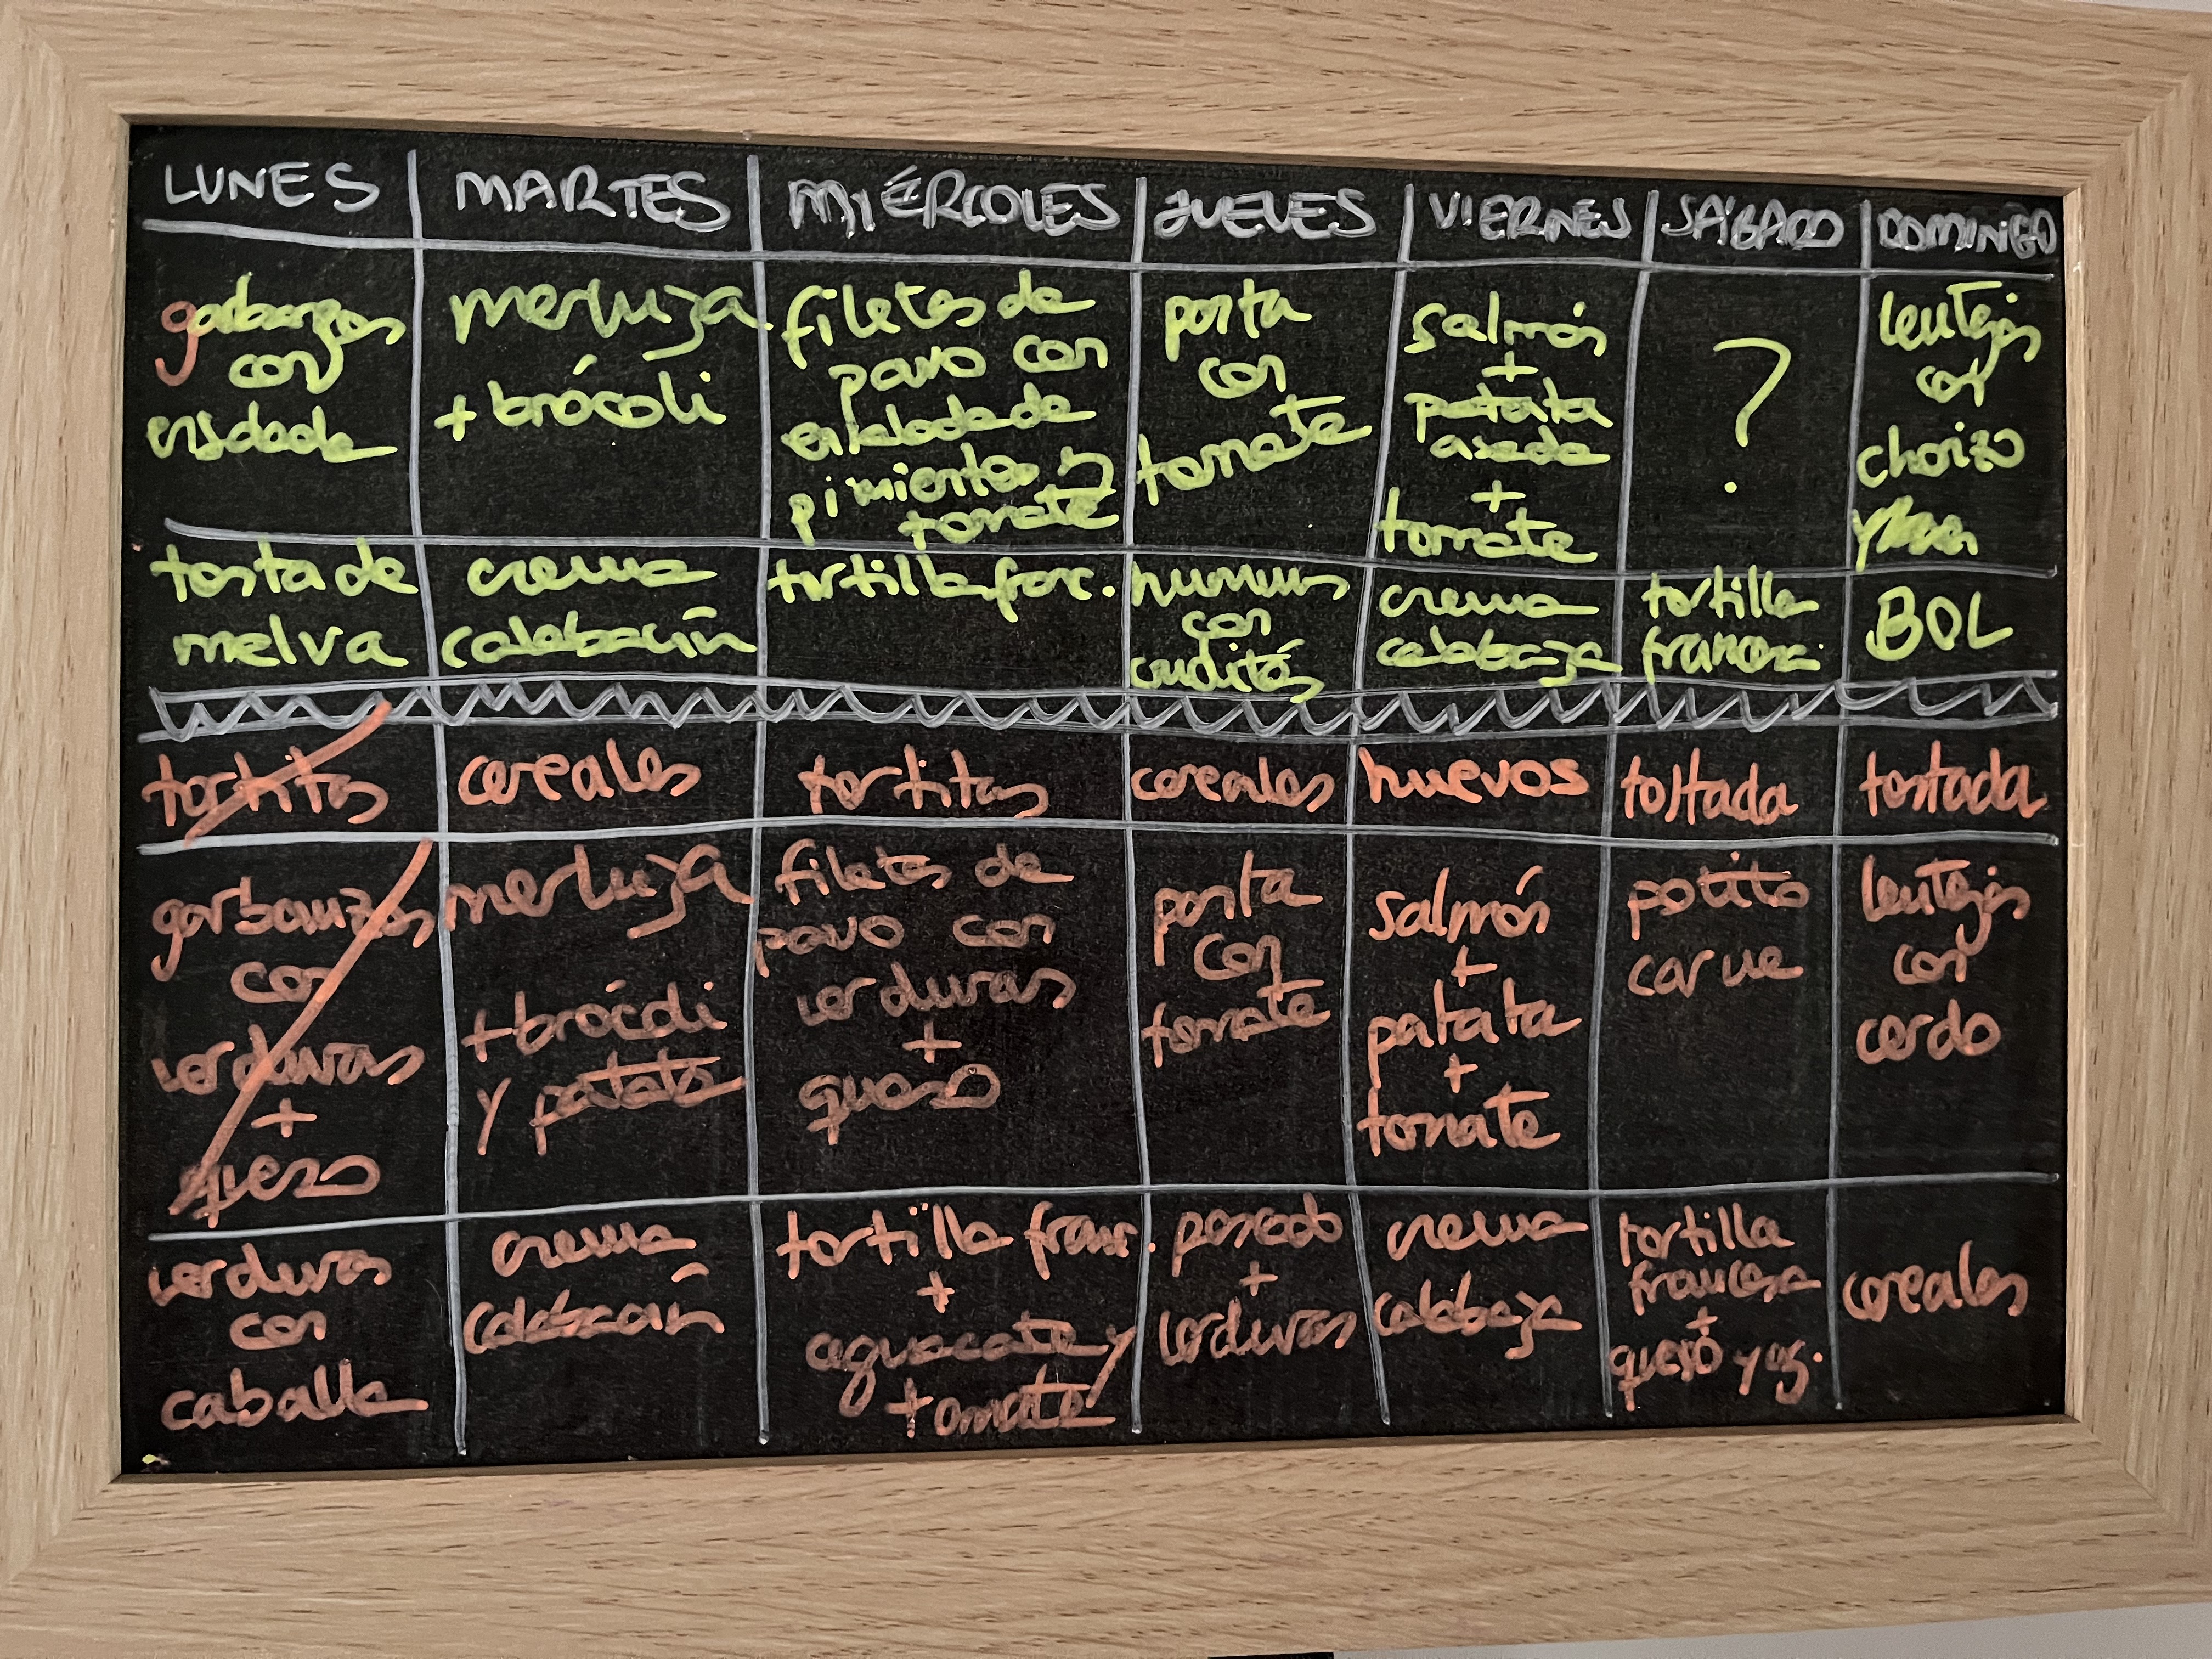 LUNES MARTES MIÉRCOLES JUEVES VIERNES SÁBADO DOMINGO
garbanzos
con
ensalada
merluza
+ brócoli
filetes de
pavo con
ensalada de
pimientos y
tomate
pasta
con
tomate
salmón
+
patata
asada
+
tomate
?
lentejas
con
chorizo
y
tosta de
melva
crema
calabacín
tortilla franc.
hummus
con
crudités
crema
calabaza
tortilla
francesa
BOL
tortitas
cereales
tortitas
cereales
huevos
tostada
tostada
garbanzos
con
verduras
+
queso
merluza
+ brócoli
y patata
filetes de
pavo con
verduras
+
queso
pasta
con
tomate
salmón
+
patata
+
tomate
potito
carne
lentejas
con
cerdo
verduras
con
caballa
crema
calabacín
tortilla franc.
+
aguacate y
tomate
pescado
+
verduras
crema
calabaza
tortilla
francesa
+
queso y ag.
cereales